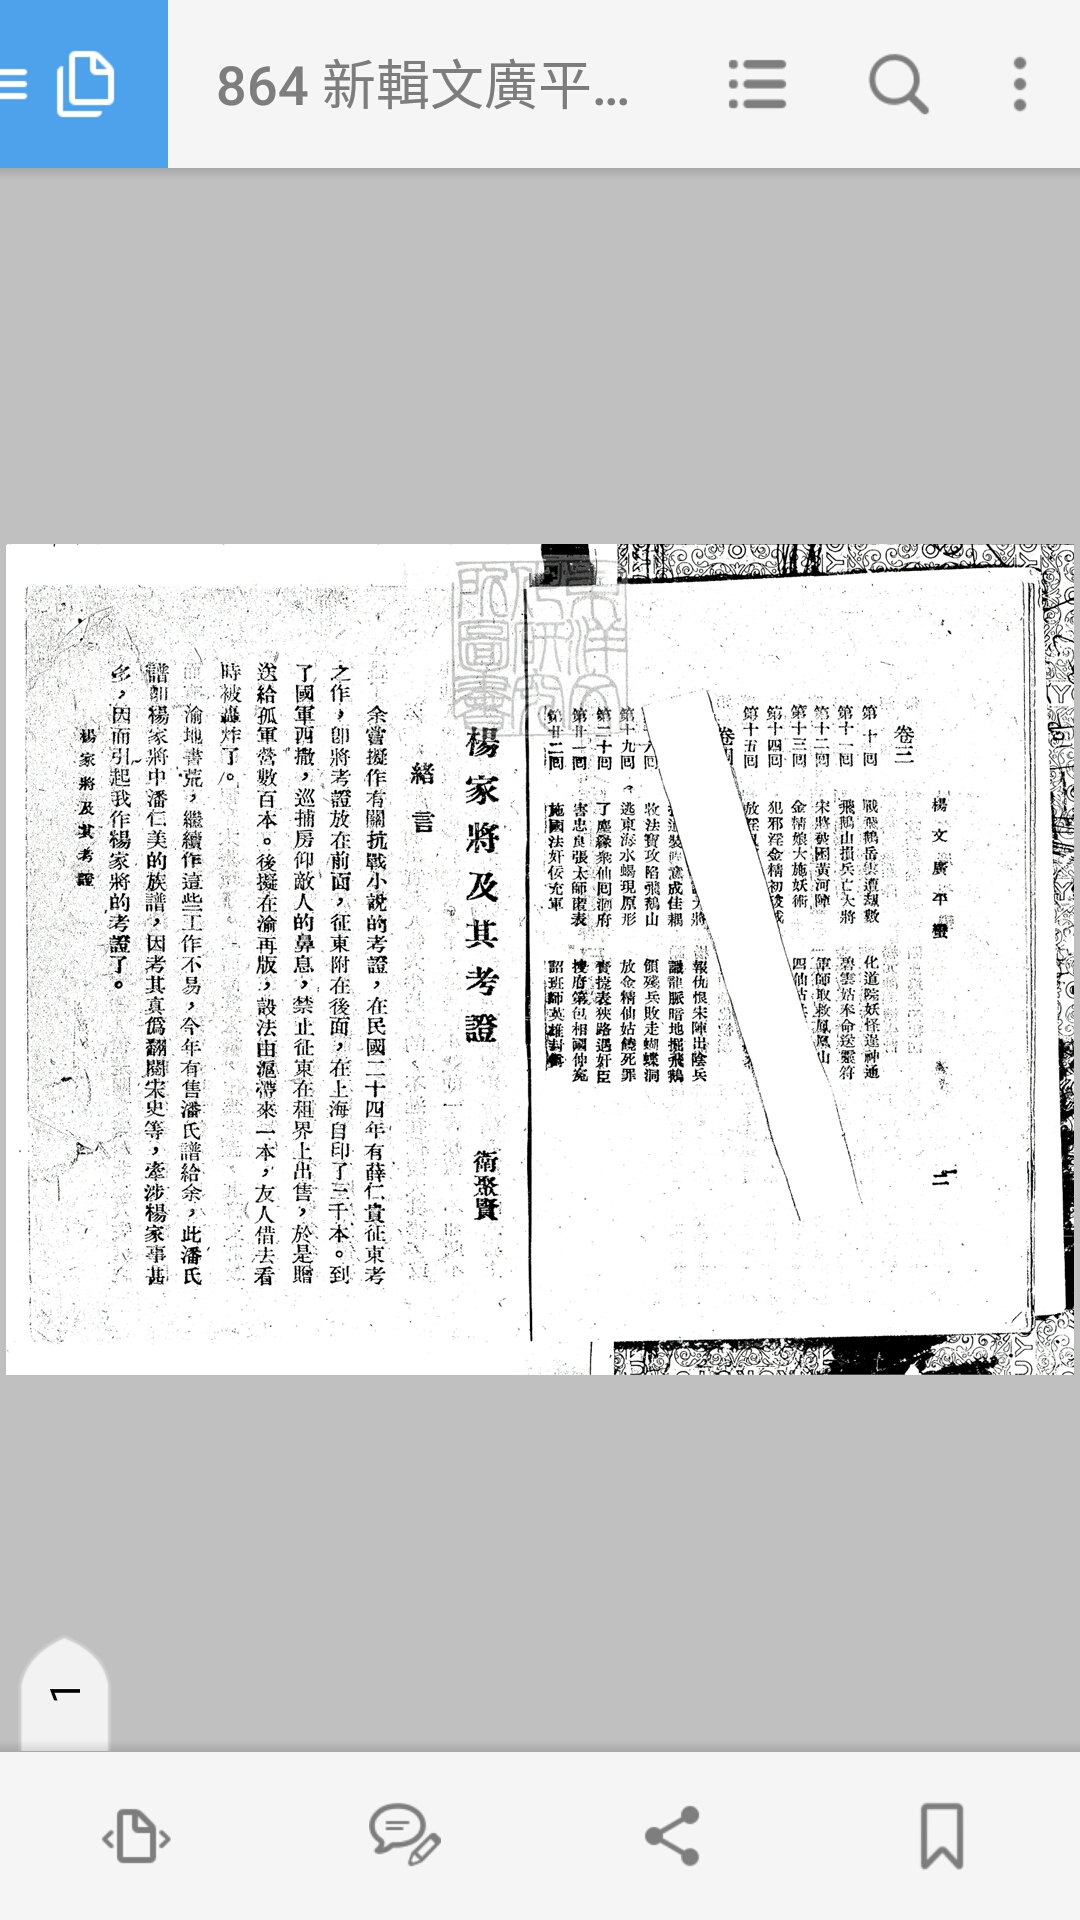 864 新輯文廣平…
楊文廣平蠻
二
卷三
第十回 化道院妖怪逢神通
第十一回 飛鵝山損兵亡大將 碧雲姑奉命送靈符
第十二回 宋將被困黃河陣 軍師取救鳳凰山
第十三回 金精娘大施妖術
第十四回
第十五回
報仇恨宋陣出陰兵
收法寶攻陷飛鵝山 領殘兵敗走蝴蝶洞
第十九回 逃東海水蝎現原形 放金精仙姑饒死罪
第二十回 了塵緣衆仙回洞府 賫捷表狹路遇奸臣
第廿一回 害忠良張太師匿表
第廿二回 施國法奸佞充軍 詔班師英雄封爵
楊家將及其考證
衛聚賢
緒言
余嘗擬作有關抗戰小說的考證，在民國二十四年有薛仁貴征東考
之作，卽將考證放在前面，征東附在後面，在上海自印了三千本。到
了國軍西撤，巡捕房仰敵人的鼻息，禁止征東在租界上出售，於是贈
送給孤軍營數百本。後擬在渝再版，設法由滬帶來一本，友人借去看
時被轟炸了。
渝地書荒，繼續作這些工作不易，今年有售潘氏譜給余，此潘氏
譜卽楊家將中潘仁美的族譜，因考其真僞翻閱宋史等，牽涉楊家事甚
多，因而引起我作楊家將的考證了。
楊家將及其考證
1